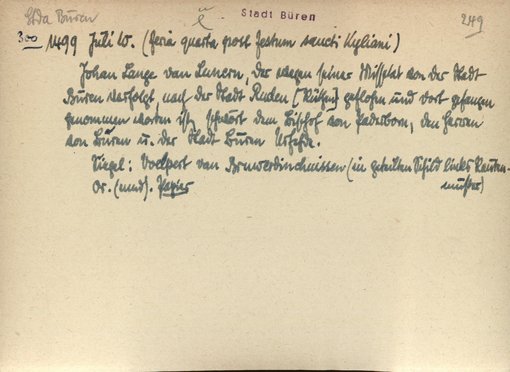 Stda Büren
ü
Stadt Büren
249
300 1499 Juli 10. (feria quarta post festum sancti Kyliani)
Johan Lange van Lunern, der wegen seiner Missetat von der Stadt
Büren verfolgt, nach der Stadt Ruden [Rüthen] geflohen und dort gefangen
genommen worden ist, schwört dem Bischof von Paderborn, den Herren
von Büren u. der Stadt Büren Urfehde.
Siegel: Volpert van (in geteilten Schild links Rauten-
muster)
Or. (mnd). Papier